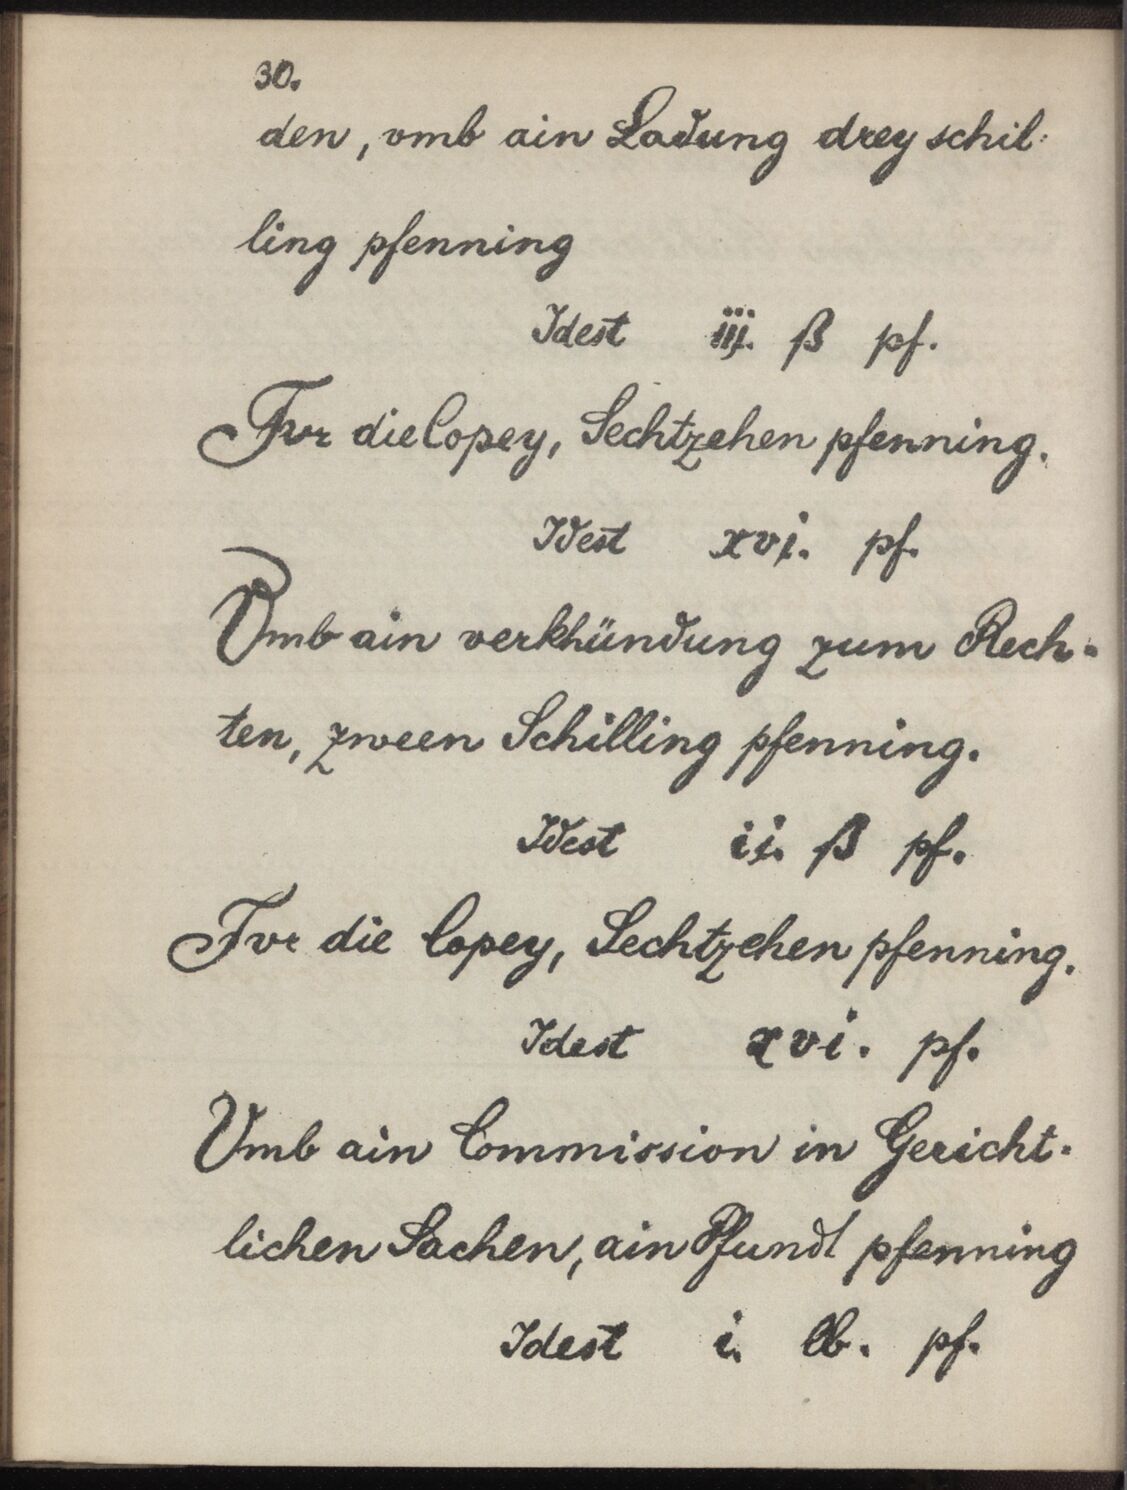 30.
den, vmb ain Ladung drey schil:
ling pfenning
Idest iij. ß pf.
Fvr die Copey, Sechtzehen pfenning.
Idest xvj. pf.
Vmb ain verkhündung zum Rech-
ten, zween Schilling pfenning.
Idest ij. ß pf.
Fvr die Copey, Sechtzehen pfenning.
Idest xvi. pf.
Vmb ain Commission in Gericht-
lichen Sachen, ain Pfundt pfenning
Idest i. lb. pf.